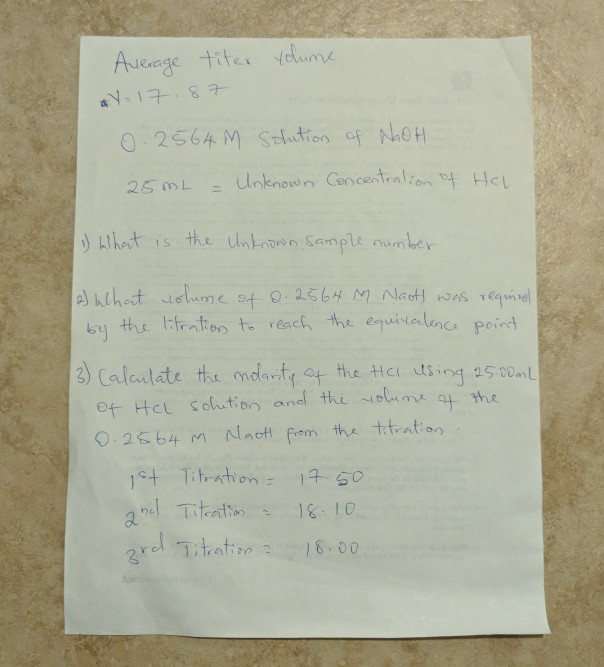 Average titer volume
V=17.87
0.2564 M Solution of NaOH
25 mL = Unknown Concentration of HCl
1) What is the Unknown sample number
2) What volume of 0.2564 M NaOH was required
by the titration to reach the equivalence point
3) Calculate the molarity of the HCl using 25.00mL
of HCl solution and the volume of the
0.2564 M NaOH from the titration.
1st Titration = 17.50
2nd Titration = 18.10
3rd Titration = 18.00